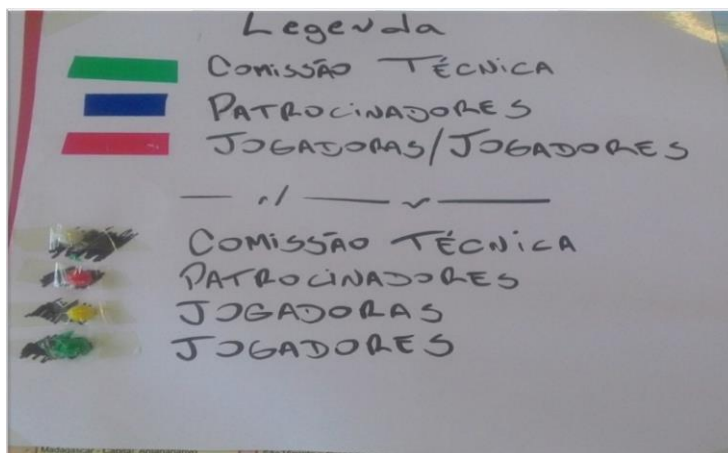 Legenda
COMISSÃO TÉCNICA
PATROCINADORES
JOGADORAS/JOGADORES
COMISSÃO TÉCNICA
PATROCINADORES
JOGADORAS
JOGADORES
Madagascar - Capital: